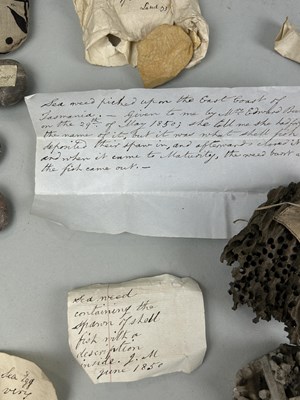 June 50
Sea weed picked up upon the East Coast of
Tasmania; - Given to me by Mrs Edward
in the 27th of May 1850; she told me she had
the name of it, but it was what shell fish
deposited their spawn in, and afterwards closed it
and when it came to Maturity, the weed burst a
the fish came out. -
Sea weed
containing the
spawn of shell
fish with a
description
inside. J. M
June 1850
Sea Egg
very